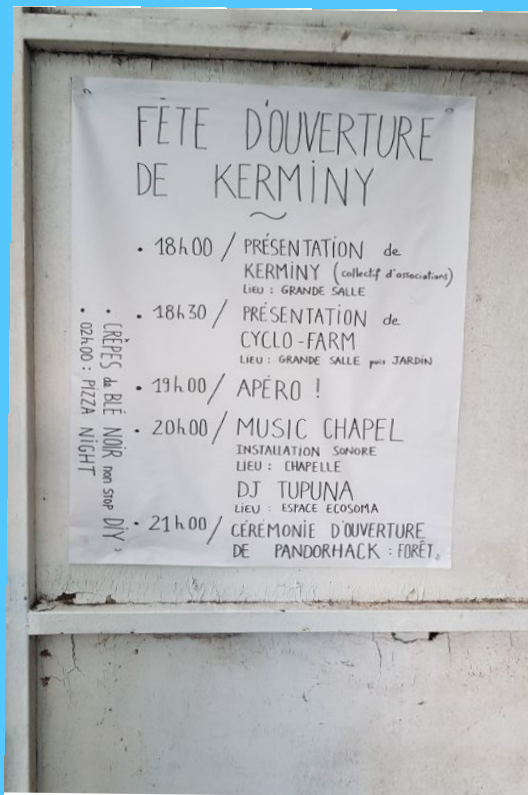 FÊTE D'OUVERTURE
DE KERMINY
~
• 18h00 / PRÉSENTATION de
KERMINY (collectif d'associations)
LIEU : GRANDE SALLE
• 18h30 / PRÉSENTATION de
CYCLO-FARM
LIEU : GRANDE SALLE puis JARDIN
• 19h00 / APÉRO !
• 20h00 / MUSIC CHAPEL
INSTALLATION SONORE
LIEU : CHAPELLE
DJ TUPUNA
LIEU : ESPACE ECOSOMA
• 21h00 / CÉRÉMONIE D'OUVERTURE
DE PANDORHACK : FORÊT.
• CRÊPES de BLÉ NOIR non stop DIY
• 02h00 : PIZZA NIGHT